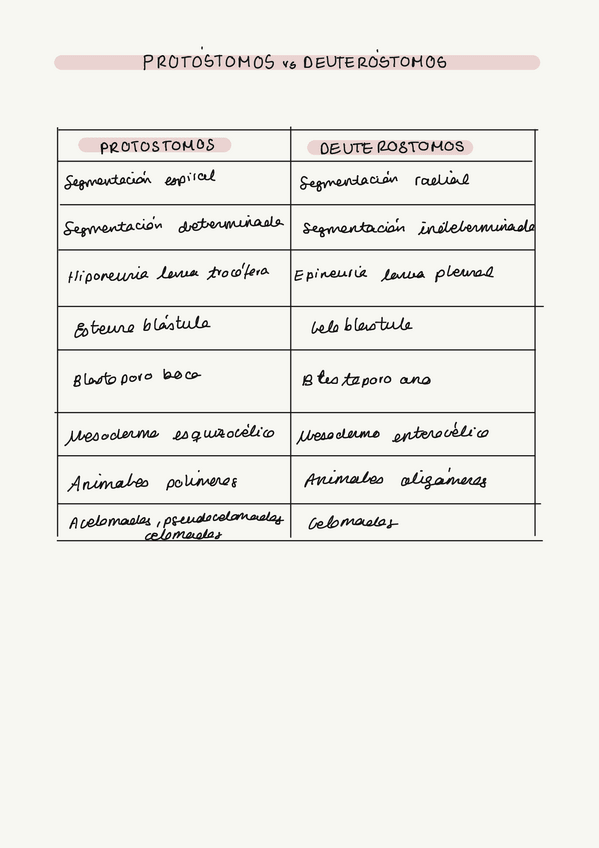 PROTÓSTOMOS vs DEUTERÓSTOMOS
PROTOSTOMOS
DEUTEROSTOMOS
Segmentación espiral
Segmentación radial
Segmentación determinada
Segmentación indeterminada
Hiponeuria larva trocófera
Epineuria larva pleural
Esterablástula
Celoblastula
Blastoporo boca
Blastoporo ano
Mesodermo esquizocélico
Mesodermo enterocélico
Animales polimeros
Animales oligómeros
Acelomados, pseudocelomados
celomados
Celomados